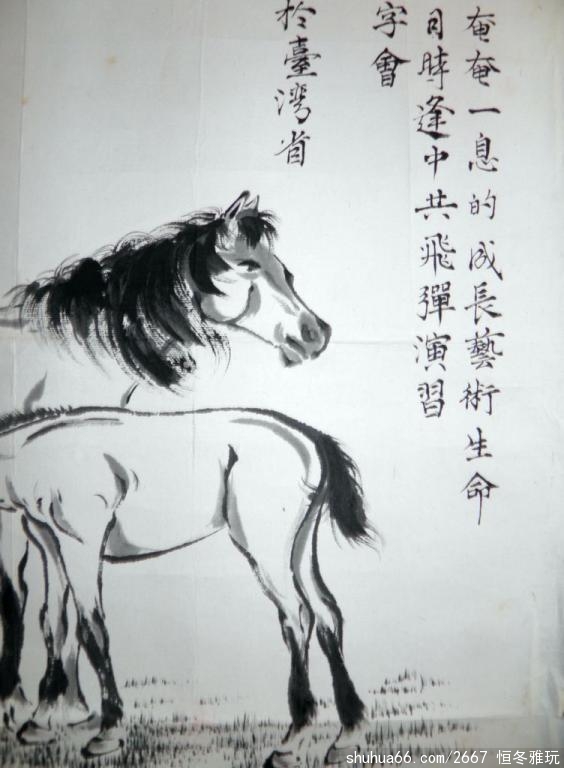 奄奄一息的成長藝術生命
日時逢中共飛彈演習
字會
於臺灣省
shuhua66.com/2667 恒冬雅玩